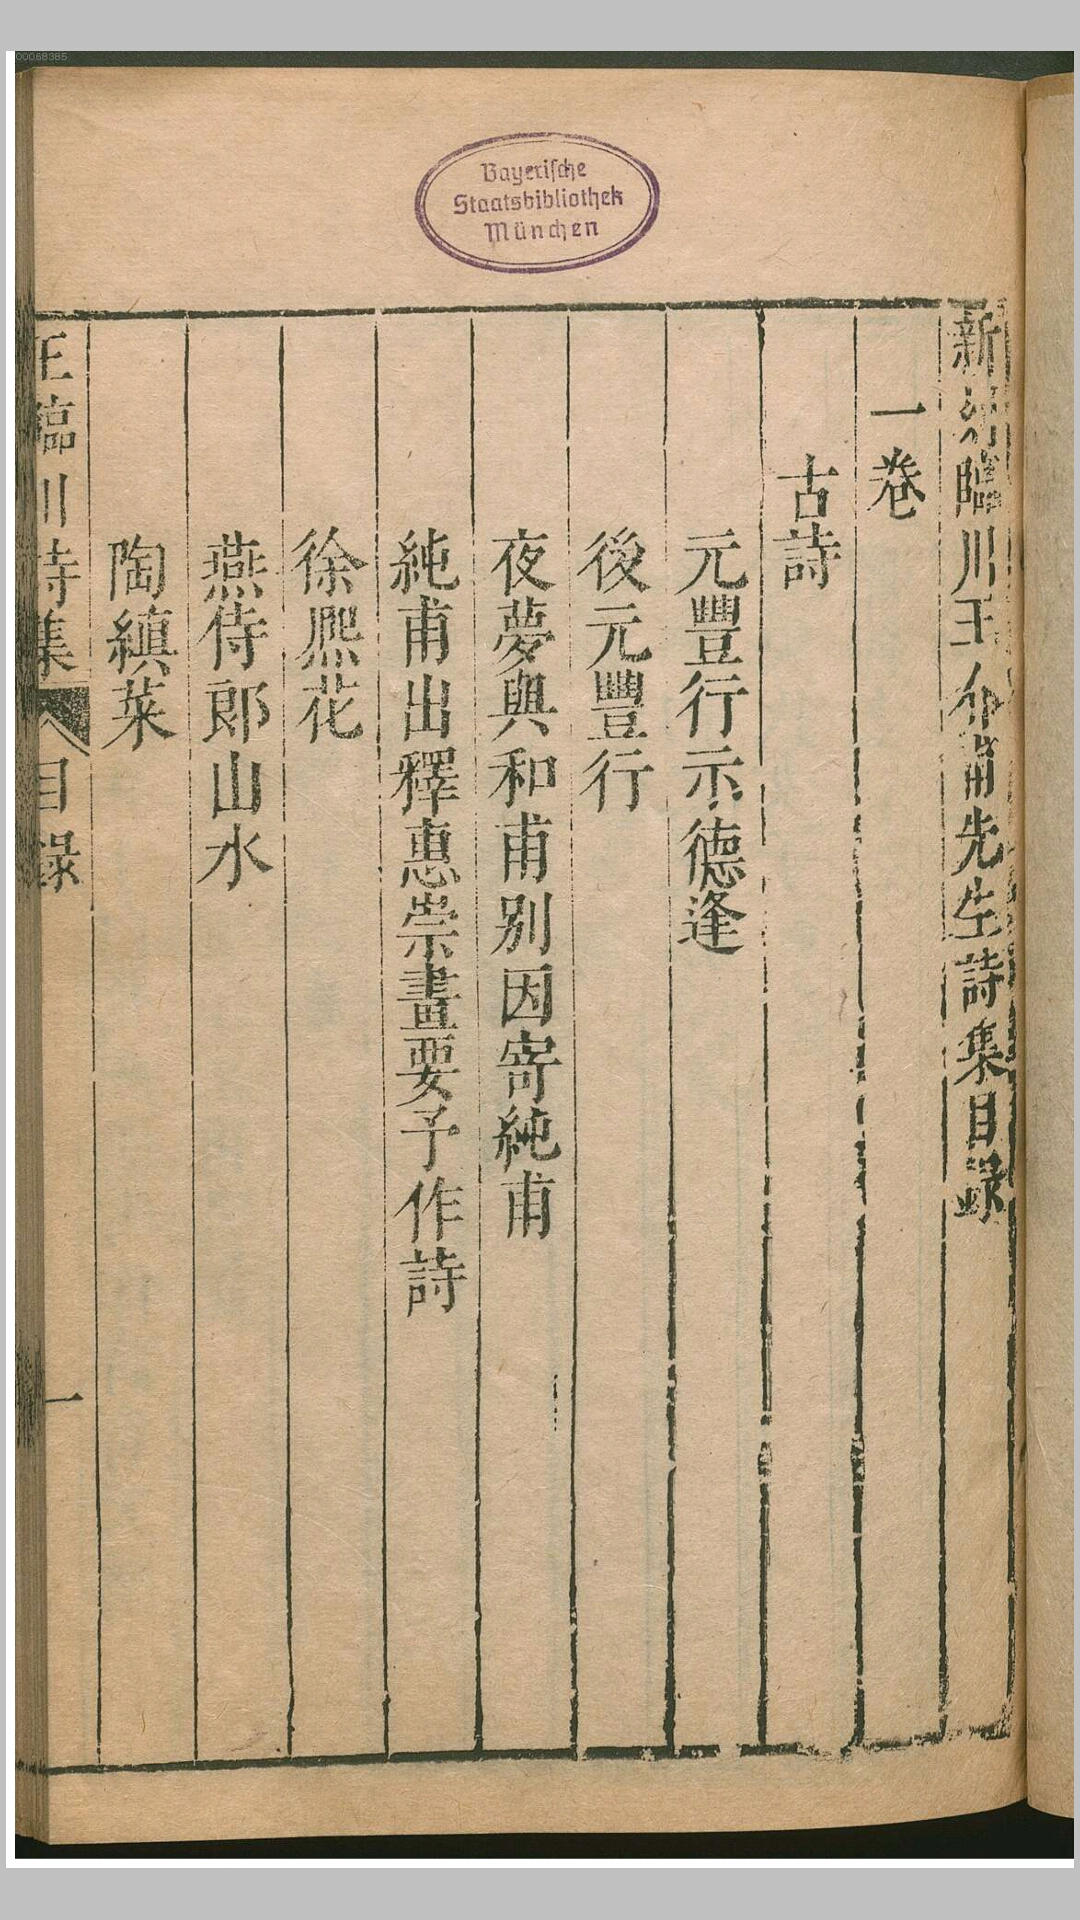 00068385
Bayerische
Staatsbibliothek
München
新刻臨川王介甫先生詩集目録
一卷
古詩
元豐行示德逢
後元豐行
夜夢與和甫别因寄純甫
純甫出釋惠崇畫要予作詩
徐熈花
燕侍郎山水
陶縝菜
王臨川詩集
目録
一